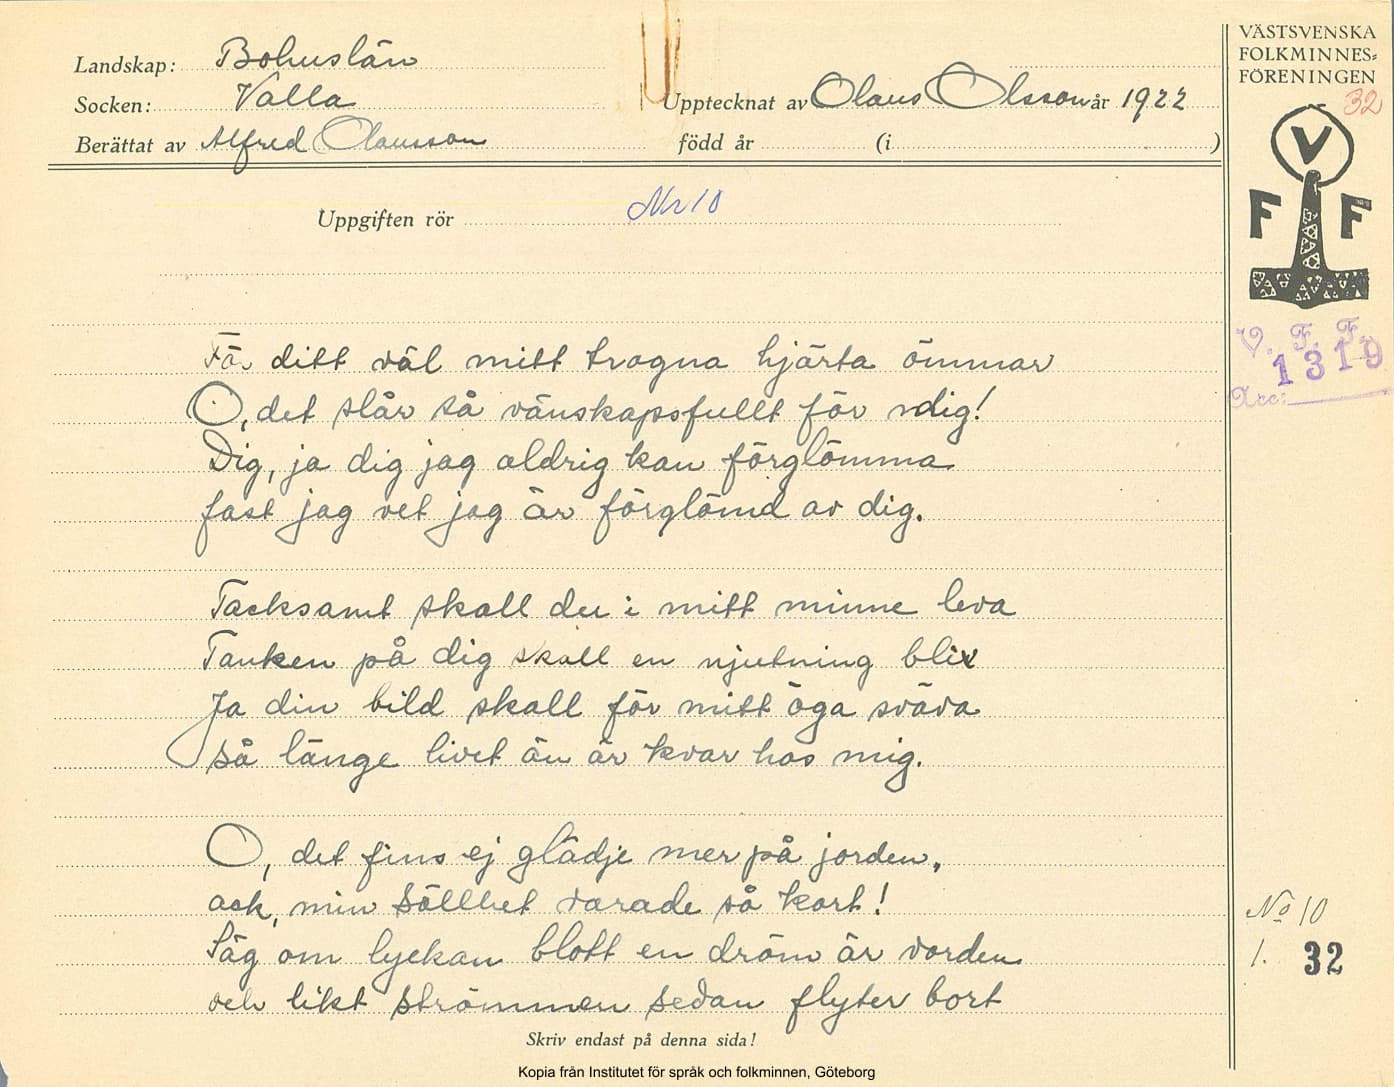 Landskap: Bohuslän
Socken: Valla
Upptecknat av Olaus Olsson år 1922
Berättat av Alfred Olausson
född år (i )
Uppgiften rör Nr 10
VÄSTSVENSKA
FOLKMINNES=
FÖRENINGEN
32
V
F F
V. F. F.
1319
Acc:
För ditt väl mitt trogna hjärta ömmar
O, det slår så vänskapsfullt för dig!
Dig, ja dig jag aldrig kan förglömma
fast jag vet jag är förglömd av dig.
Tacksamt skall du i mitt minne leva
Tanken på dig skall en njutning bli
Ja din bild skall för mitt öga sväva
så länge livet än är kvar hos mig.
O, det fins ej glädje mer på jorden,
ack, min sällhet varade så kort!
Säg om lyckan blott en dröm är vorden
och likt strömmen sedan flyter bort
No 10
1. 32
Skriv endast på denna sida!
Kopia från Institutet för språk och folkminnen, Göteborg